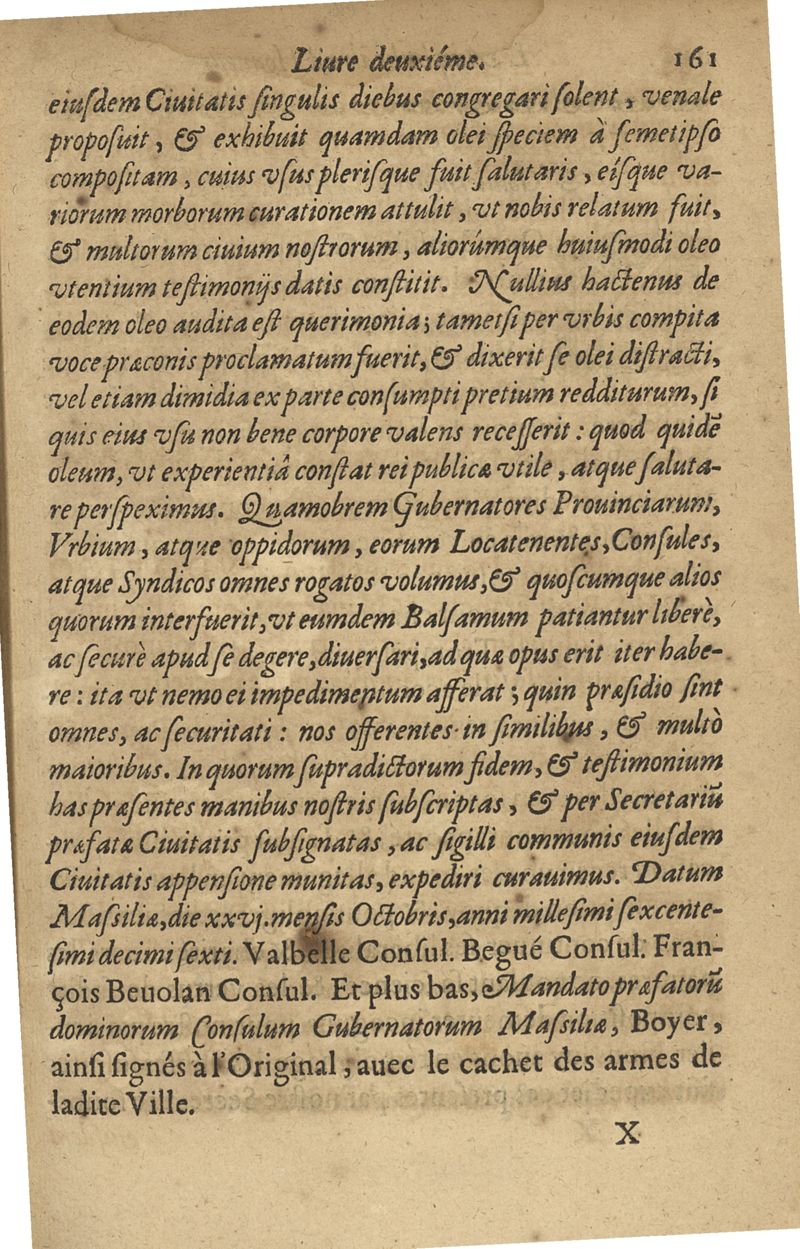 Liure deuxiéme. 161
eiuſdem Ciuitatis ſingulis diebus congregari ſolent, venale
propoſuit, & exhibuit quamdam olei ſpeciem à ſemetipſo
compoſitam, cuius vſus pleriſque fuit ſalutaris, eíſque va-
riorum morborum curationem attulit, vt nobis relatum fuit,
& multorum ciuium noſtrorum, aliorúmque huiuſmodi oleo
vtentium teſtimonijs datis conſtitit. Nullius hactenus de
eodem oleo audita eſt querimonia; tametſi per vrbis compita
voce præconis proclamatum fuerit, & dixerit ſe olei diſtracti,
vel etiam dimidia ex parte conſumpti pretium redditurum, ſi
quis eius vſu non bene corpore valens receſſerit: quod quidẽ
oleum, vt experientiâ conſtat reipublicæ vtile, atque ſaluta-
re perſpeximus. Quamobrem Gubernatores Prouinciarum,
Vrbium, atque oppidorum, eorum Locatenentes, Conſules,
atque Syndicos omnes rogatos volumus, & quoſcumque alios
quorum interfuerit, vt eumdem Balſamum patiantur liberè,
ac ſecurè apud ſe degere, diuerſari, ad quæ opus erit iter habe-
re: ita vt nemo ei impedimentum afferat; quin præſidio ſint
omnes, ac ſecuritati: nos offerentes in ſimilibus, & multò
maioribus. In quorum ſupradictorum fidem, & teſtimonium
has præſentes manibus noſtris ſubſcriptas, & per Secretariũ
præfatæ Ciuitatis ſubſignatas, ac ſigilli communis eiuſdem
Ciuitatis appenſione munitas, expediri curauimus. Datum
Maſsiliæ, die xxvj. menſis Octobris, anni milleſimi ſexcente-
ſimi decimi ſexti. Valbelle Conſul. Begué Conſul. Fran-
çois Beuolan Conſul. Et plus bas, Mandato præfatorũ
dominorum Conſulum Gubernatorum Maſsiliæ, Boyer,
ainſi ſignés à l'Original, auec le cachet des armes de
ladite Ville.
X